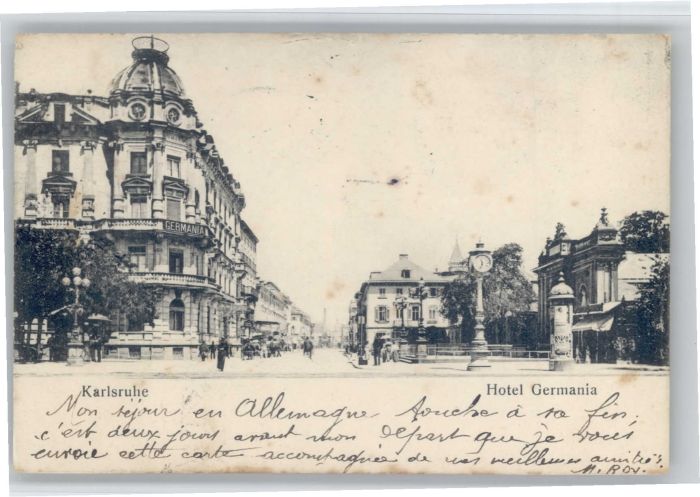 GERMANIA
Karlsruhe
Hotel Germania
Mon séjour en Allemagne touche à sa fin.
c'est deux jours avant mon départ que je vous
envoie cette carte accompagnée de mes meilleures amitiés